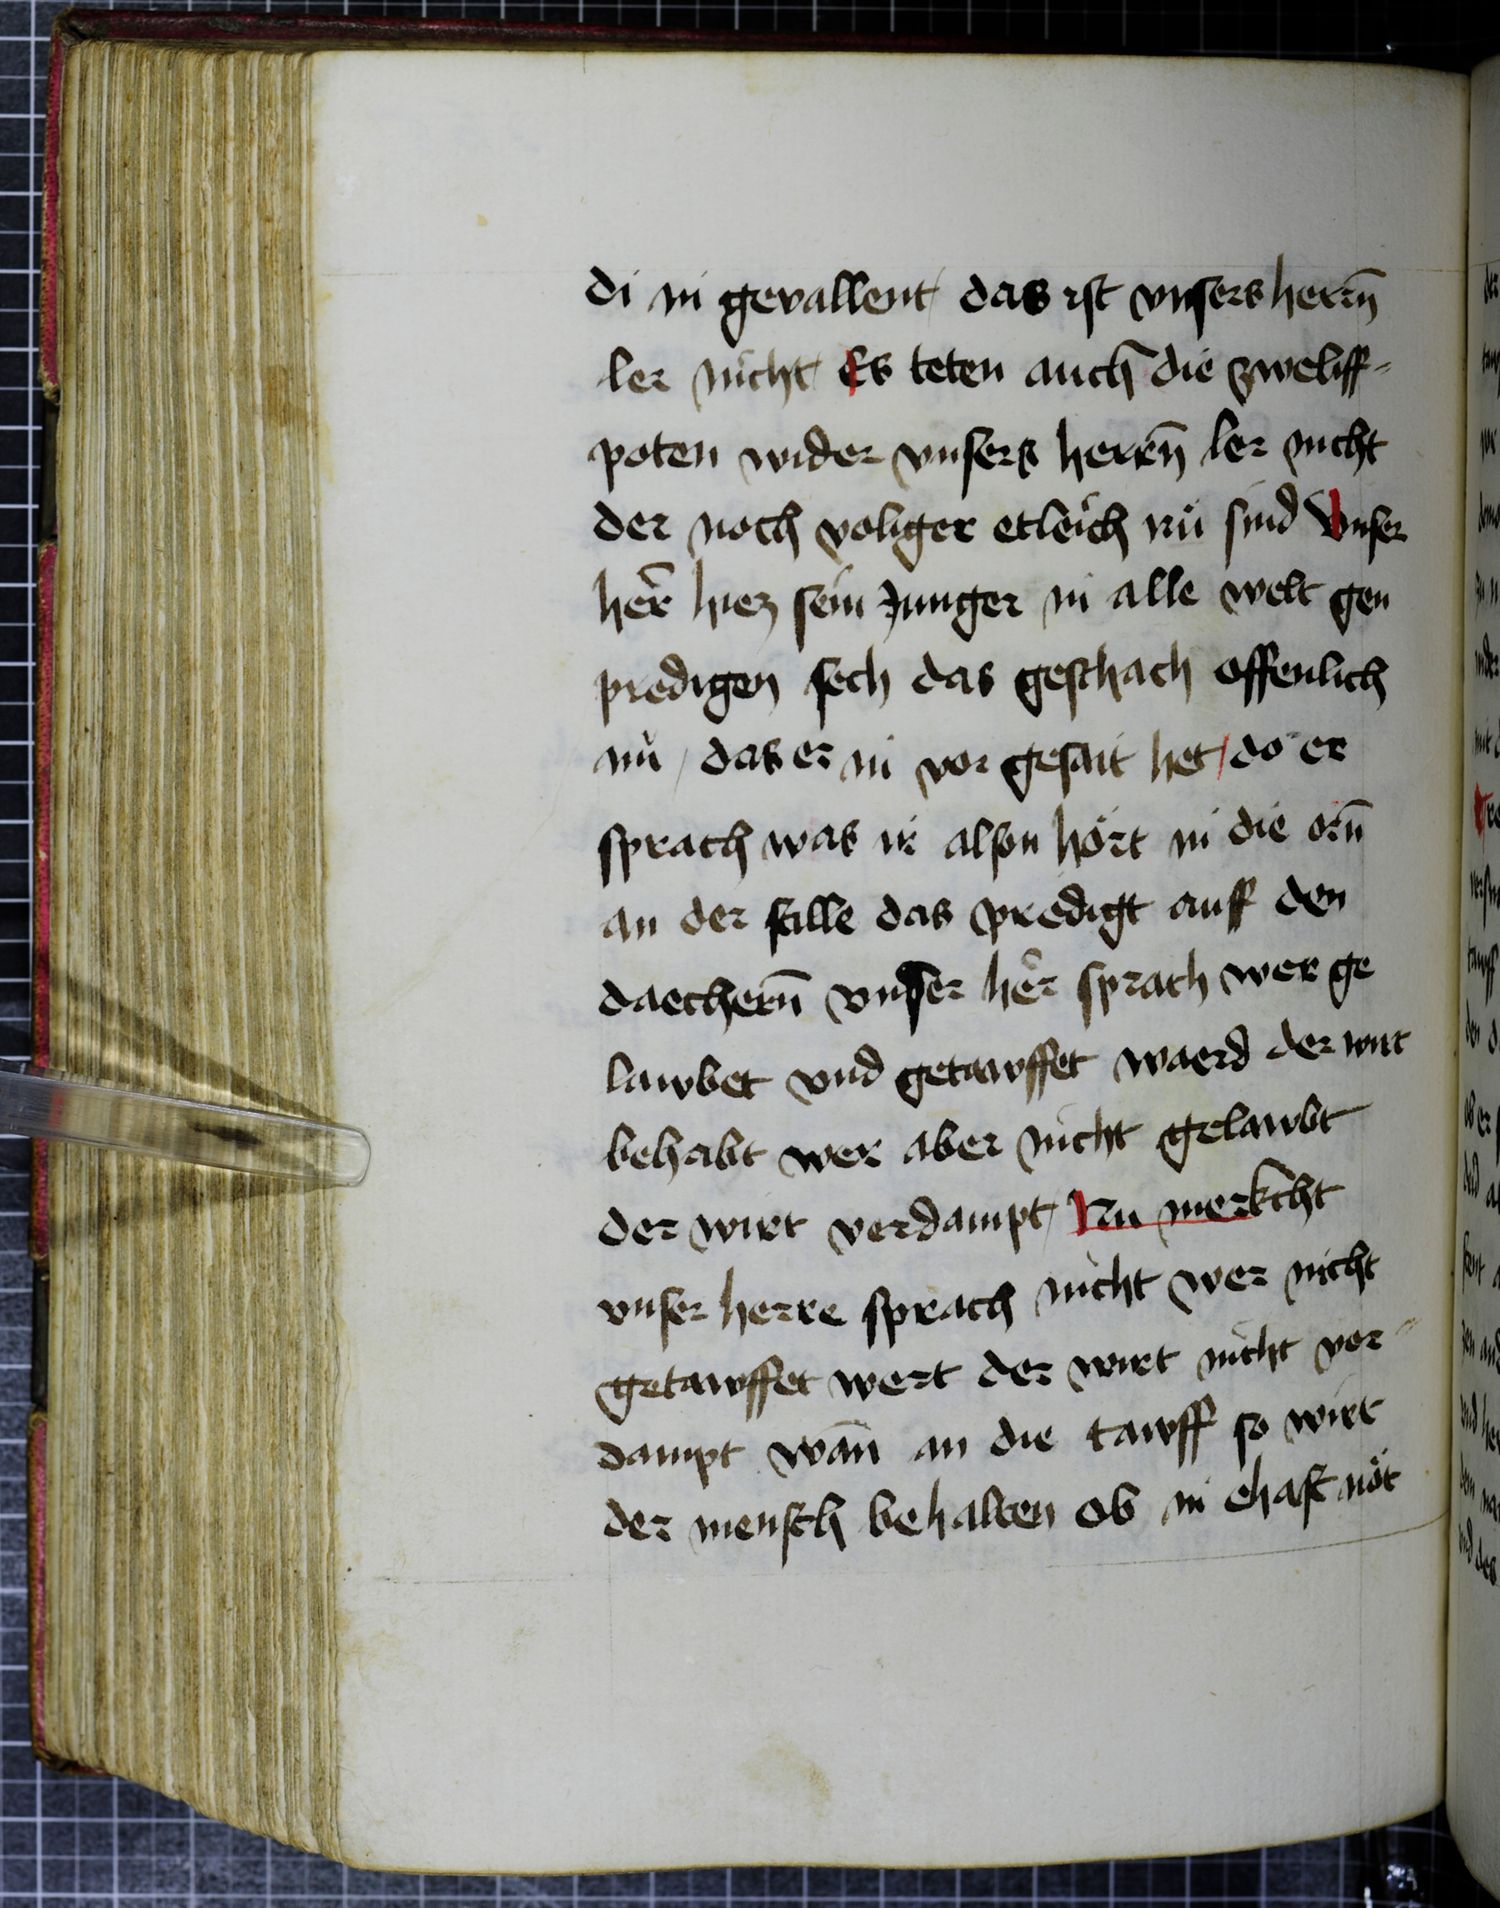 di in gevallent / das ist vnsers herrn̄
ler nicht / Es teten auch die zweliff-
poten wider vnsers herrn̄ ler nicht
der noch voliger etleich nu sind Vnser
her hiez sein Junger in alle welt gen
predigen sech das geschach offenlich
nu / das er in vor gesait het / do er
sprach was ir alson hört in die orn̄
an der stille das predigt auff den
daechern̄ vnser her sprach wer ge
lawbet vnd getawffet waerd der wirt
behabt wer aber nicht gelawbt
der wirt verdampt / Nu merkcht
vnser herre sprach nicht wer nicht
getawffet wert der wirt nicht ver
dampt wan̄ an die tawff so wirt
der mensch behalten ob in ehaft nöt